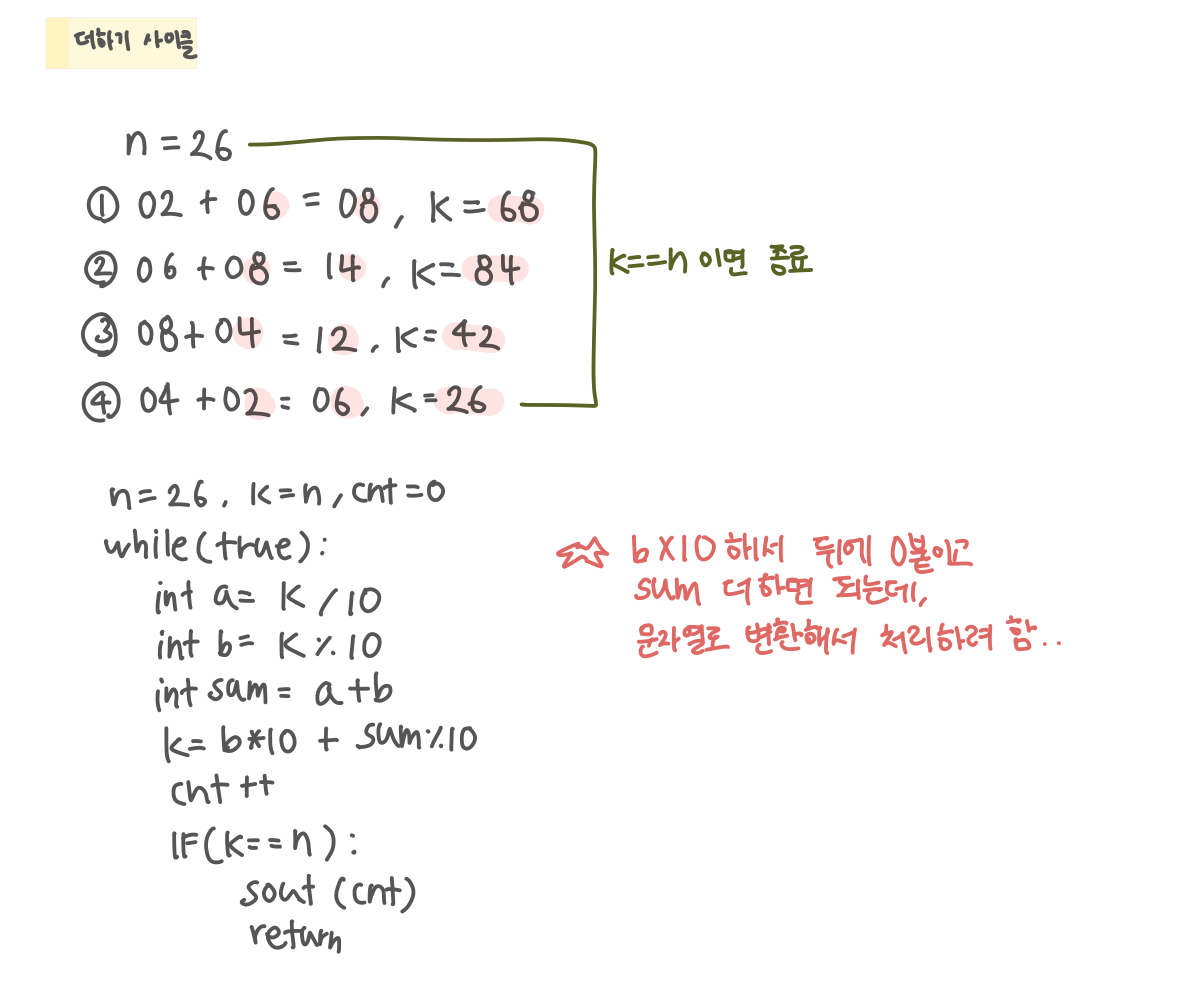 더하기 사이클
n = 26
① 02 + 06 = 08, k = 68
② 06 + 08 = 14, k = 84
k==n 이면 종료
③ 08 + 04 = 12, k = 42
④ 04 + 02 = 06, k = 26
n = 26, k = n, cnt = 0
while(true):
int a = k / 10
int b = k % 10
int sam = a + b
k = b*10 + sum%10
cnt ++
IF(k==n):
sout (cnt)
return
☆ b×10 해서 뒤에 0붙이고
sum 더하면 되는데,
문자열로 변환해서 처리하려 함..